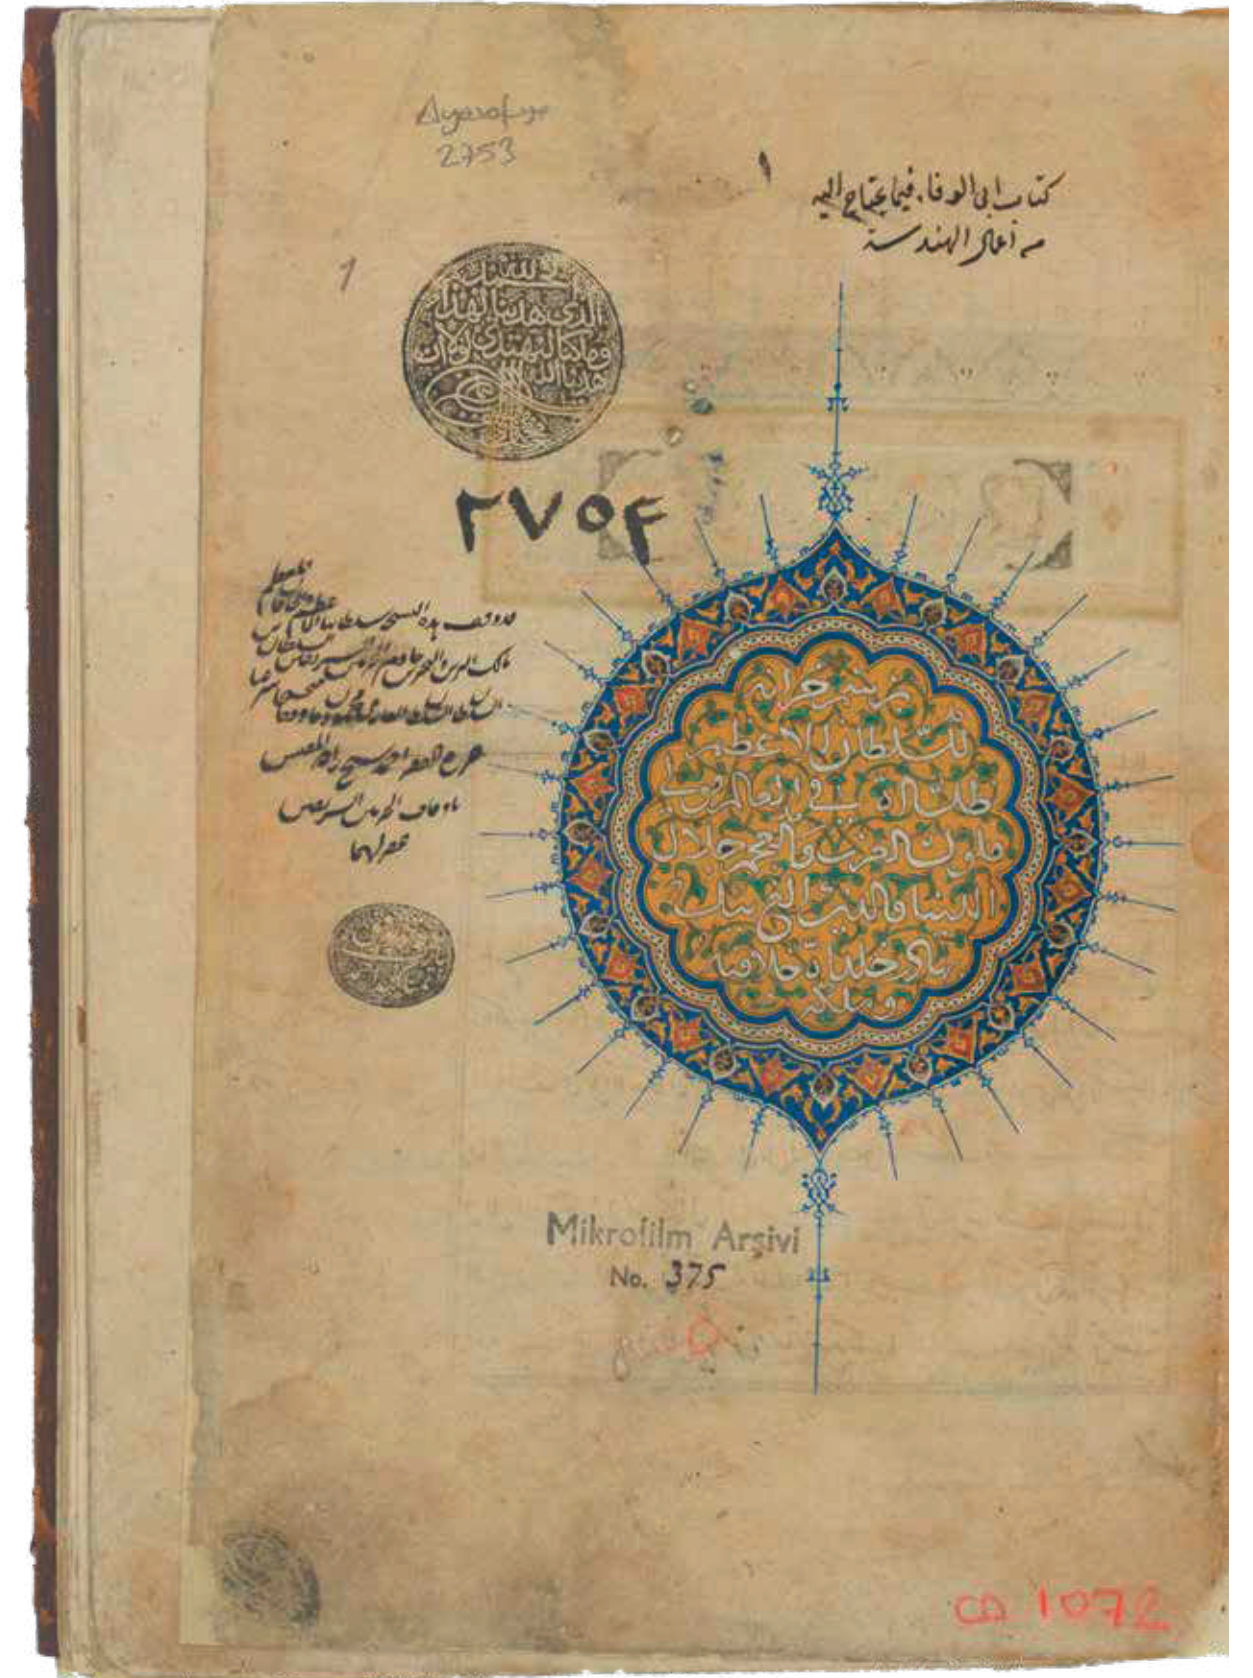 Ayasofya
2753
١
كتاب ابى الوفا، فيما يحتاج اليه
من اعمال الهندسة
1
الحمد لله
الذى هدينا لهذا
وما كنا لنهتدى لولا ان
هدينا الله
٢٧٥٣
قد وقف هذه النسخة سلطاننا الاعظم والخاقان المعظم
مالك البرين والبحرين خادم الحرمين الشريفين السلطان بن
السلطان السلطان الغازى محمود خان وقفا صحيحا شرعيا
حرره الفقير احمد شيخ زاده المفتش
باوقاف الحرمين الشريفين
غفر لهما
برسم خزانة
السلطان الاعظم
ظل الله في العالم مولى
ملوك العرب والعجم جلال
الدنيا والدين الغ بيك
بهادر خلد الله خلافته
وملكه
Mikrofilm Arşivi
No. 375
CD 1072